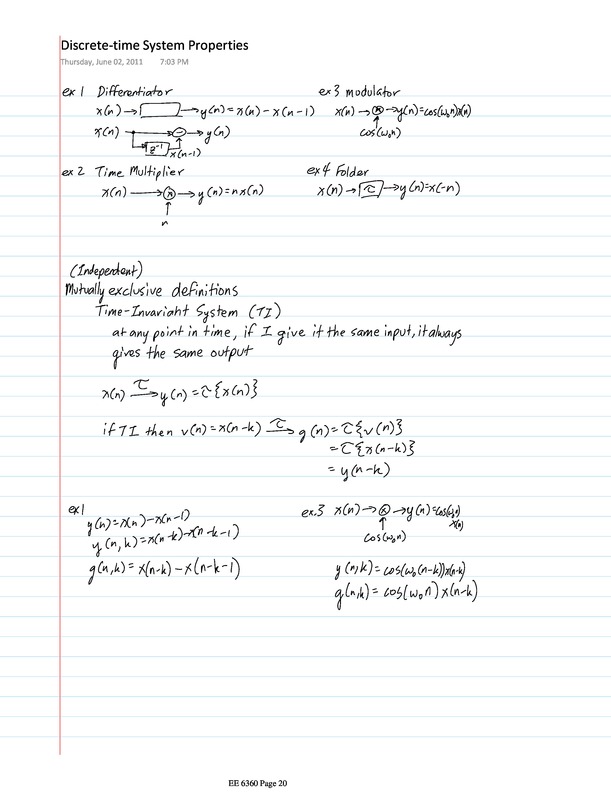 Discrete-time System Properties
Thursday, June 02, 2011 7:03 PM
ex 1 Differentiator
x(n) → → y(n) = x(n) - x(n-1)
x(n) → - → y(n)
z⁻¹ x(n-1)
ex 3 modulator
x(n) → x → y(n)=cos(ω₀n)x(n)
cos(ω₀n)
ex 2 Time Multiplier
x(n) → x → y(n)=n x(n)
n
ex 4 Folder
x(n) → τ → y(n)=x(-n)
(Independent)
Mutually exclusive definitions
Time-Invariant System (TI)
at any point in time, if I give it the same input, it always
gives the same output
x(n) →τ y(n) = τ{x(n)}
if TI then v(n) = x(n-k) →τ g(n) = τ{v(n)}
= τ{x(n-k)}
= y(n-k)
ex 1
y(n)=x(n)-x(n-1)
y(n,k)=x(n-k)-x(n-k-1)
g(n,k)=x(n-k)-x(n-k-1)
ex. 3 x(n) → x → y(n)=cos(ω₀n)
x(n)
cos(ω₀n)
y(n,k)=cos(ω₀(n-k))x(n-k)
g(n,k)=cos(ω₀n)x(n-k)
EE 6360 Page 20